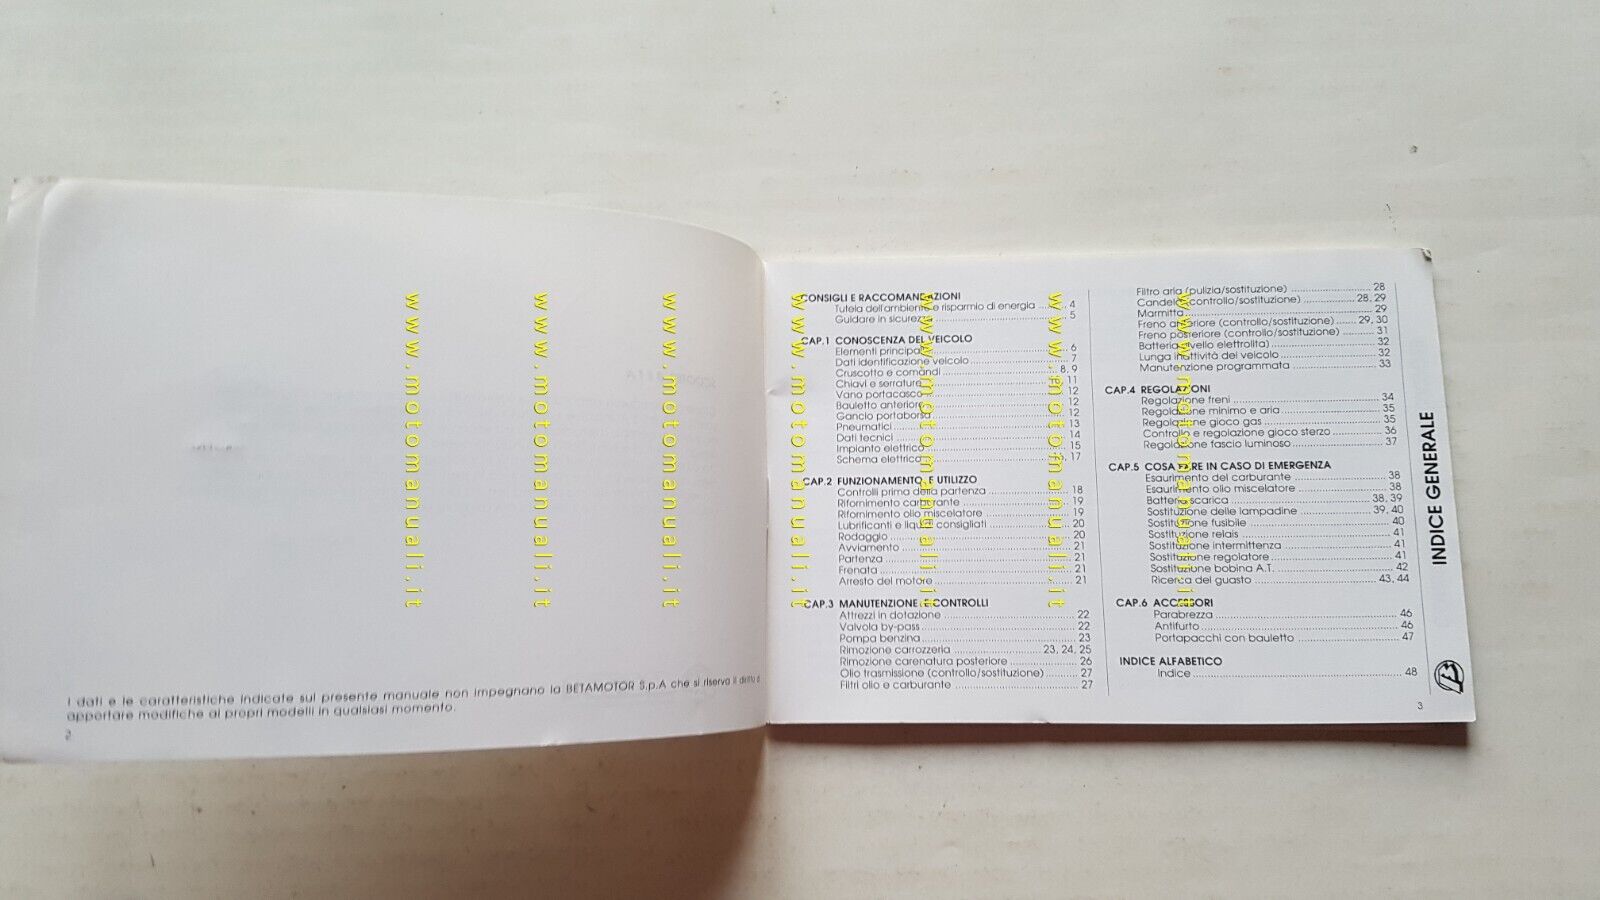 I dati e le caratteristiche indicate sul presente manuale non impegnano la BETAMOTOR S.p.A che si riserva il diritto di
apportare modifiche ai propri modelli in qualsiasi momento.
2
CONSIGLI E RACCOMANDAZIONI
Tutela dell'ambiente e risparmio di energia ........ 4
Guidare in sicurezza ........ 5
CAP.1 CONOSCENZA DEL VEICOLO
Elementi principali ........ 6
Dati identificazione veicolo ........ 7
Cruscotto e comandi ........ 8, 9
Chiavi e serrature ........ 10, 11
Vano portacasco ........ 12
Bauletto anteriore ........ 12
Gancio portaborsa ........ 12
Pneumatici ........ 13
Dati tecnici ........ 14
Impianto elettrico ........ 15
Schema elettrico ........ 16, 17
CAP.2 FUNZIONAMENTO E UTILIZZO
Controlli prima della partenza ........ 18
Rifornimento carburante ........ 19
Rifornimento olio miscelatore ........ 19
Lubrificanti e liquidi consigliati ........ 20
Rodaggio ........ 20
Avviamento ........ 21
Partenza ........ 21
Frenata ........ 21
Arresto del motore ........ 21
CAP.3 MANUTENZIONE E CONTROLLI
Attrezzi in dotazione ........ 22
Valvola by-pass ........ 22
Pompa benzina ........ 23
Rimozione carrozzeria ........ 23, 24, 25
Rimozione carenatura posteriore ........ 26
Olio trasmissione (controllo/sostituzione) ........ 27
Filtri olio e carburante ........ 27
Filtro aria (pulizia/sostituzione) ........ 28
Candela (controllo/sostituzione) ........ 28, 29
Marmitta ........ 29
Freno anteriore (controllo/sostituzione) ........ 29, 30
Freno posteriore (controllo/sostituzione) ........ 31
Batteria (livello elettrolita) ........ 32
Lunga inattività del veicolo ........ 32
Manutenzione programmata ........ 33
CAP.4 REGOLAZIONI
Regolazione freni ........ 34
Regolazione minimo e aria ........ 35
Regolazione gioco gas ........ 35
Controllo e regolazione gioco sterzo ........ 36
Regolazione fascio luminoso ........ 37
CAP.5 COSA FARE IN CASO DI EMERGENZA
Esaurimento del carburante ........ 38
Esaurimento olio miscelatore ........ 38
Batteria scarica ........ 38, 39
Sostituzione delle lampadine ........ 39, 40
Sostituzione fusibile ........ 40
Sostituzione relais ........ 41
Sostituzione intermittenza ........ 41
Sostituzione regolatore ........ 41
Sostituzione bobina A.T. ........ 42
Ricerca del guasto ........ 43, 44
CAP.6 ACCESSORI
Parabrezza ........ 46
Antifurto ........ 46
Portapacchi con bauletto ........ 47
INDICE ALFABETICO
Indice ........ 48
INDICE GENERALE
3
www.motomanuali.it
www.motomanuali.it
www.motomanuali.it
www.motomanuali.it
www.motomanuali.it
www.motomanuali.it
www.motomanuali.it